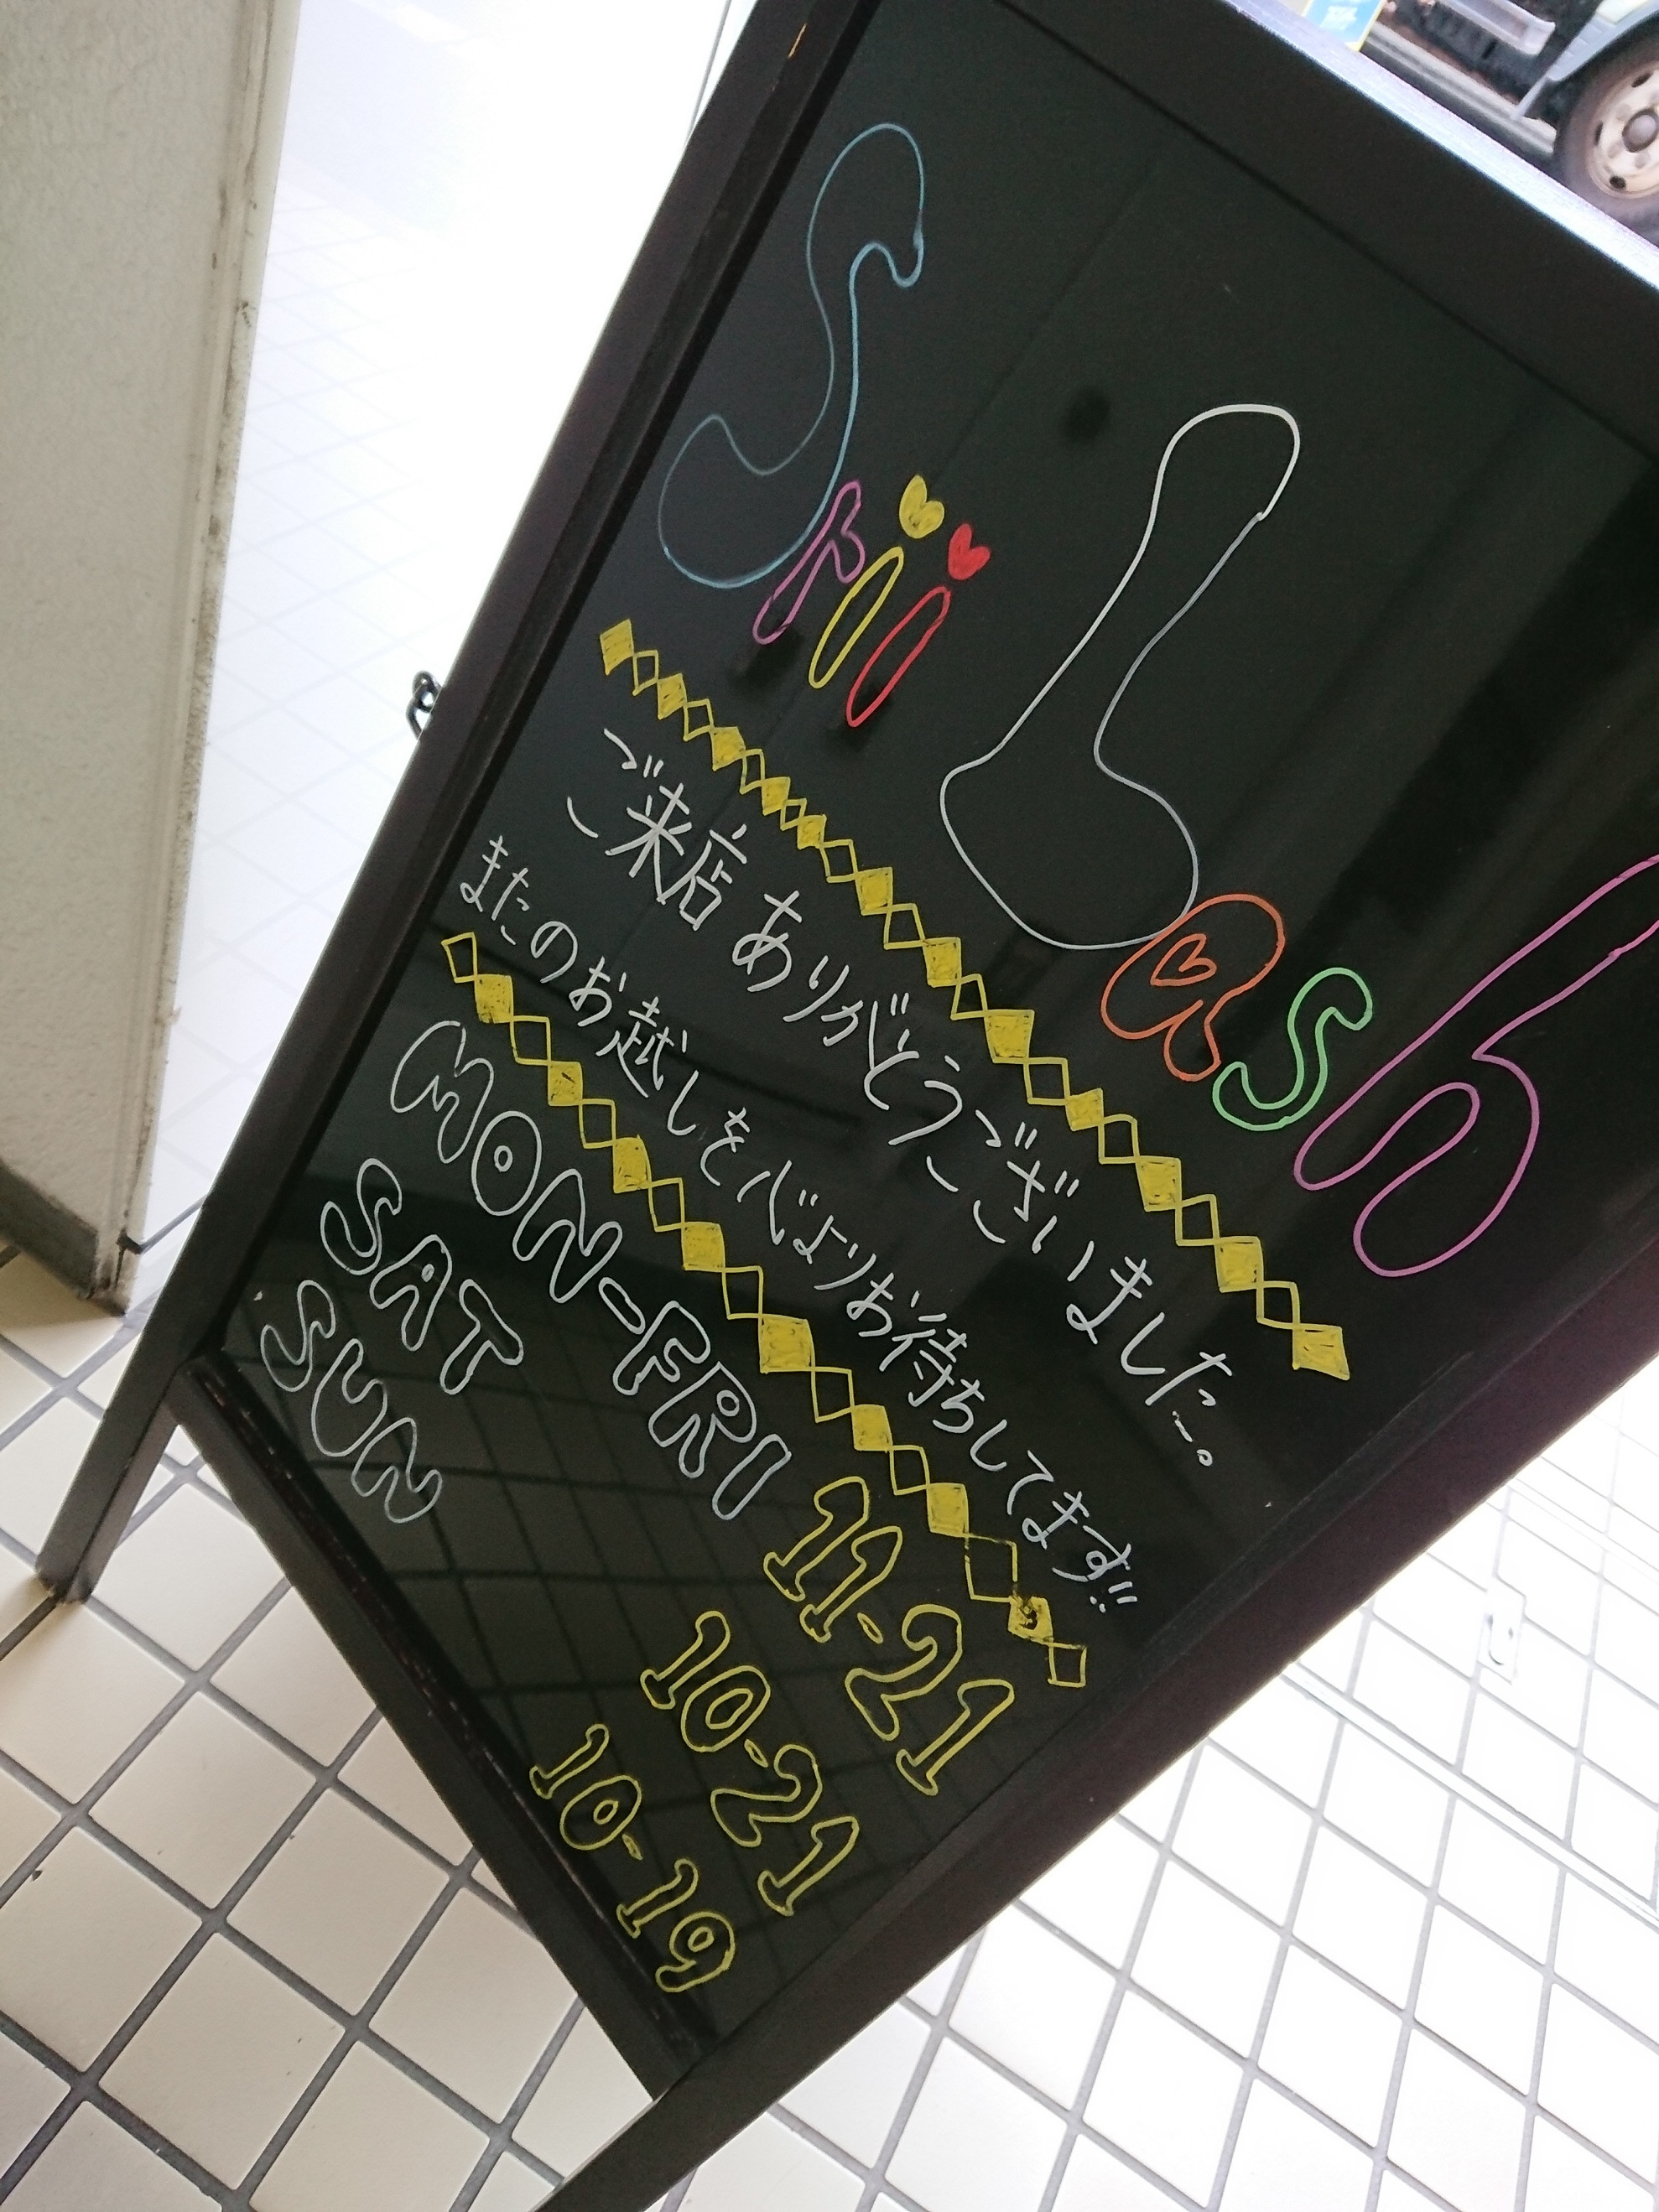 Srii Lash
ご来店ありがとうございました。
またのお越しを心よりお待ちしてます!!
MON-FRI 11-21
SAT 10-21
SUN 10-19